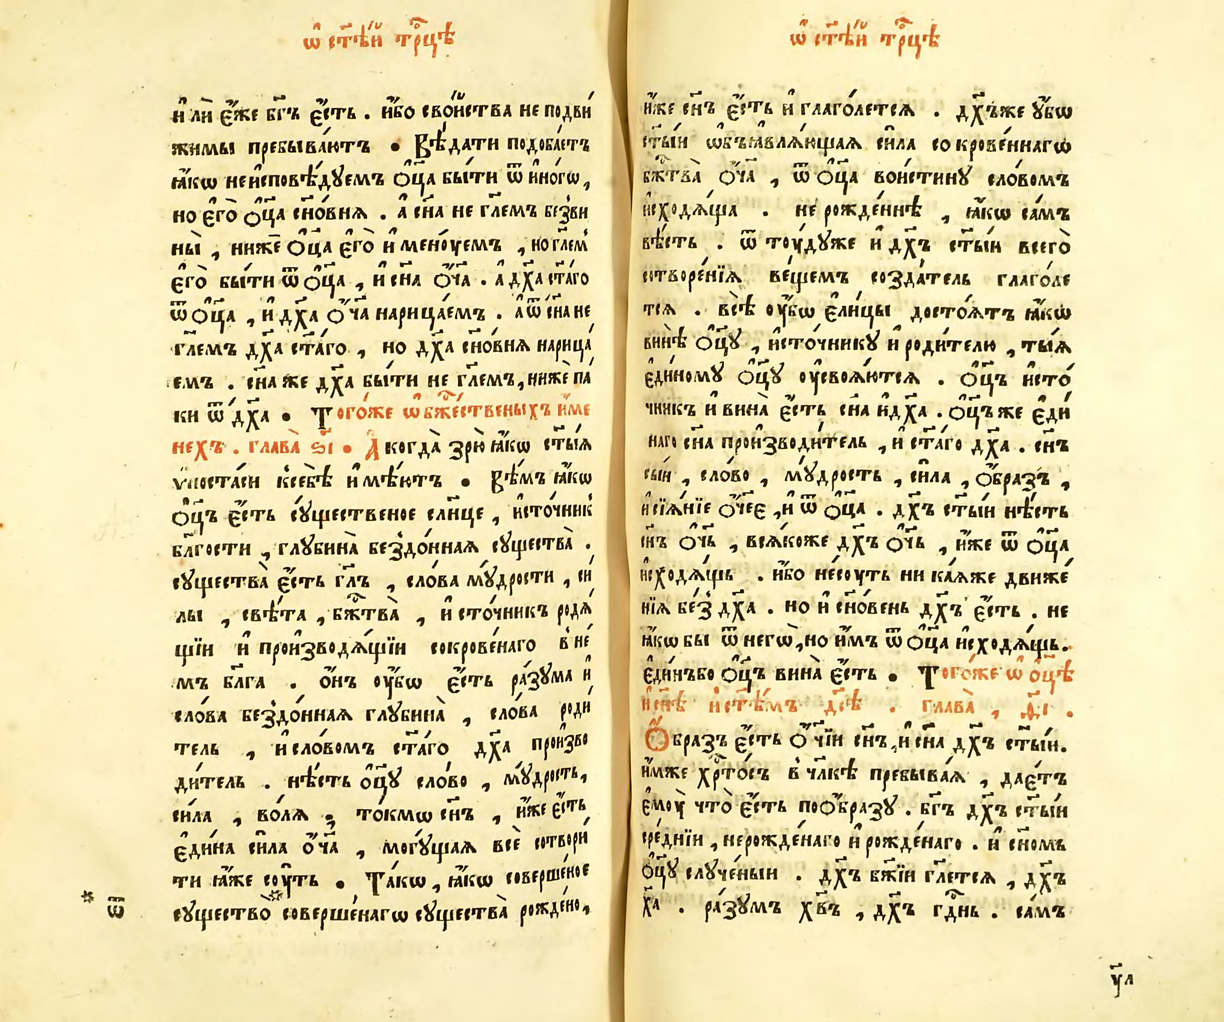 ѡ҆ ст҃ѣ́й трⷪ҇цѣ
и҆ лѝ є҆́же бг҃ъ є҆́сть . и҆́бо сво́йства не подви́
жимы пребыва́ютъ • Вѣ́дати подоба́етъ
ꙗ҆́кѡ неисповѣ́дуемъ ѻ҆ц҃а бы́ти ѿ и҆но́гѡ ,
но є҆гѡ̀ ѻ҆ц҃а сн҃овнѧ . а҆ сн҃а не гл҃емъ безви
ны̀ , нижѐ ѻ҆ц҃а є҆го̀ и҆менꙋ́емъ , но гл҃ем
є҆го̀ бы́ти ѿ ѻ҆ц҃а , и҆ сн҃а ѻ҆́ч҃а . а҆ дх҃а ст҃а́го
ѿ ѻ҆ц҃а , и҆ дх҃а ѻ҆ч҃а нарица́емъ . а҆ ѿ сн҃а не
гл҃емъ дх҃а ст҃а́го , но дх҃а сн҃овнѧ нарица́
емъ . сн҃а же дх҃а бы́ти не гл҃емъ , нижѐ па́
ки ѿ дх҃а • Тогѡ́же ѡ҆ бж҃е́ственыхъ и҆ме
не́хъ . глава̀ ѕ҃і • А҆ когда̀ зрю̀ ꙗ҆́кѡ ст҃ы́ѧ
ѵ҆поста́си ксебѣ̀ и҆мѣ́ютъ • Вѣ́мъ ꙗ҆́кѡ
ѻ҆ц҃ъ є҆́сть сꙋ́щественое сл҃нце , и҆сто́чник
бл҃гости , глꙋбина̀ бездо́нная сꙋщества̀ .
сꙋщества̀ є҆́сть гл҃ъ , сло́ва мꙋ́дрости , си́
лы , свѣ́та , бжⷭ҇тва̀ , и҆ сто́чникъ родѧ́
щїи и҆ производѧ́щїи сокрове́наго в не́
мъ бл҃га . ѻ҆́нъ ᲂу҆́бѡ є҆́сть ра́зꙋма и҆
сло́ва бездо́нная глꙋбина̀ , сло́ва роди́
тель , и҆ сло́вомъ ст҃а́го дх҃а произво
ди́тель . нѣ́сть ѻ҆ц҃ꙋ сло́во , мꙋ́дрость ,
си́ла , во́лѧ , то́кмѡ сн҃ъ , и҆́же є҆́сть
є҆ди́на си́ла ѻ҆́ч҃а , могꙋ́щая всѐ сотвори́
ти ꙗ҆́же сꙋ́ть • Та́кѡ , ꙗ҆́кѡ соверше́ное
сꙋщество̀ соверше́нагѡ сꙋщества̀ рожде́но ,
* ѿ
ѡ҆ ст҃ѣ́й трⷪ҇цѣ
и҆́же сн҃ъ є҆́сть и҆ глаго́летсѧ . дх҃ъ же ᲂу҆́бѡ
ст҃ы́и ѡ҆бъꙗвлѧ́ющая си́ла сокрове́ннагѡ
бжⷭ҇тва̀ ѻ҆́ч҃а , ѿ ѻ҆ц҃а вои́стинꙋ сло́вомъ
и҆сходѧ́ща . нерожде́ннѣ , ꙗ҆́кѡ са́мъ
вѣ́сть . ѿ тꙋ́дꙋже и҆ дх҃ъ ст҃ы́и всего̀
сотворе́нїѧ ве́щемъ созда́тель глаго́ле
тсѧ . всѣ̀ ᲂу҆́бѡ є҆ли́цы достоѧ́тъ ꙗ҆́кѡ
винѣ̀ ѻ҆ц҃ꙋ , и҆сто́чникꙋ и҆ роди́телю , ты́ѧ
є҆ди́номꙋ ѻ҆ц҃ꙋ ᲂу҆сво́ѧютсѧ . ѻ҆ц҃ъ и҆сто́
чникъ и҆ вина̀ є҆́сть сн҃а и҆ дх҃а . ѻ҆ц҃ъ же є҆ди́
наго сн҃а производи́тель , и҆ ст҃а́го дх҃а . сн҃ъ
сы́и , сло́во , мꙋ́дрость , си́ла , ѻ҆́бразъ ,
и҆ сїѧ́нїе ѻ҆́ч҃ее , и҆ ѿ ѻ҆ц҃а . дх҃ъ ст҃ы́и нѣ́сть
сн҃ъ ѻ҆́ч҃ь , всѧ́коже дх҃ъ ѻ҆́ч҃ь , и҆́же ѿ ѻ҆ц҃а
и҆сходѧ́щь . и҆́бо несꙋ́ть ни ка́ѧже движе́
нїѧ без̾ дх҃а . но и҆ сн҃овень дх҃ъ є҆́сть . не
ꙗ҆́кѡ бы ѿ негѡ̀ , но и҆́мъ ѿ ѻ҆ц҃а и҆сходѧ́щь .
є҆ди́нъ бо ѻ҆ц҃ъ вина̀ є҆́сть • Тогѡ́же ѡ҆ ѻ҆ц҃ѣ
и҆ сн҃ѣ и҆ ст҃ѣ́мъ дс҃ѣ . глава̀ , д҃і .
Ѻ҆́бразъ є҆́сть ѻ҆́ч҃їи сн҃ъ , и҆ сн҃а дх҃ъ ст҃ы́и .
и҆́мже хрⷭ҇то́съ в чл҃кѣ пребыва́ѧ , дае́тъ
є҆мꙋ̀ что̀ є҆́сть по ѻ҆́бразꙋ . бг҃ъ дх҃ъ ст҃ы́и
сре́днїи , нерожде́наго и҆ рожде́наго . и҆ сн҃омъ
ѻ҆ц҃ꙋ слꙋче́ныи . дх҃ъ бж҃їи гл҃етсѧ , дх҃ъ
хⷭ҇а . ра́зꙋмъ хв҃ъ , дх҃ъ гдⷭ҇нь . са́мъ
ул